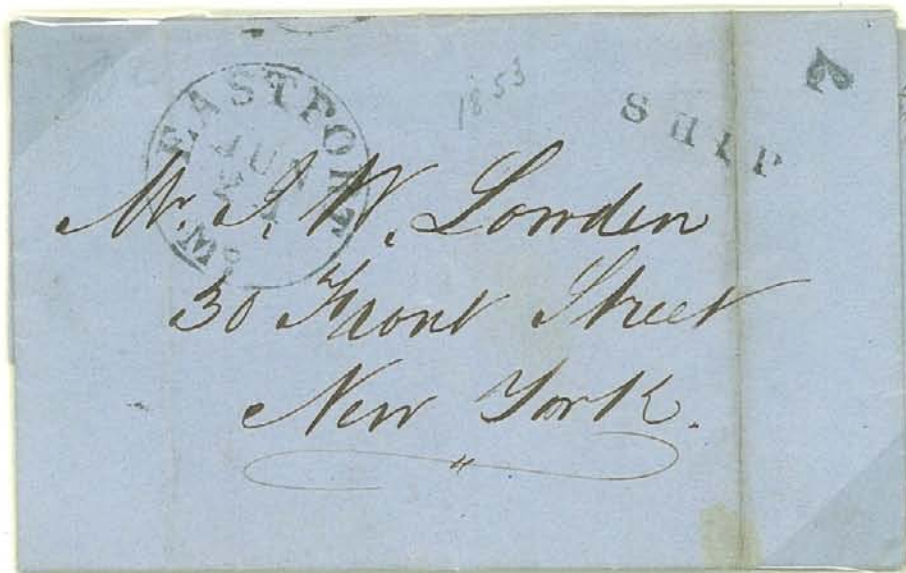 EASTPORT Me.
1853
SHIP
7
Mr. J. W. Lowden
30 Front Street
New York.